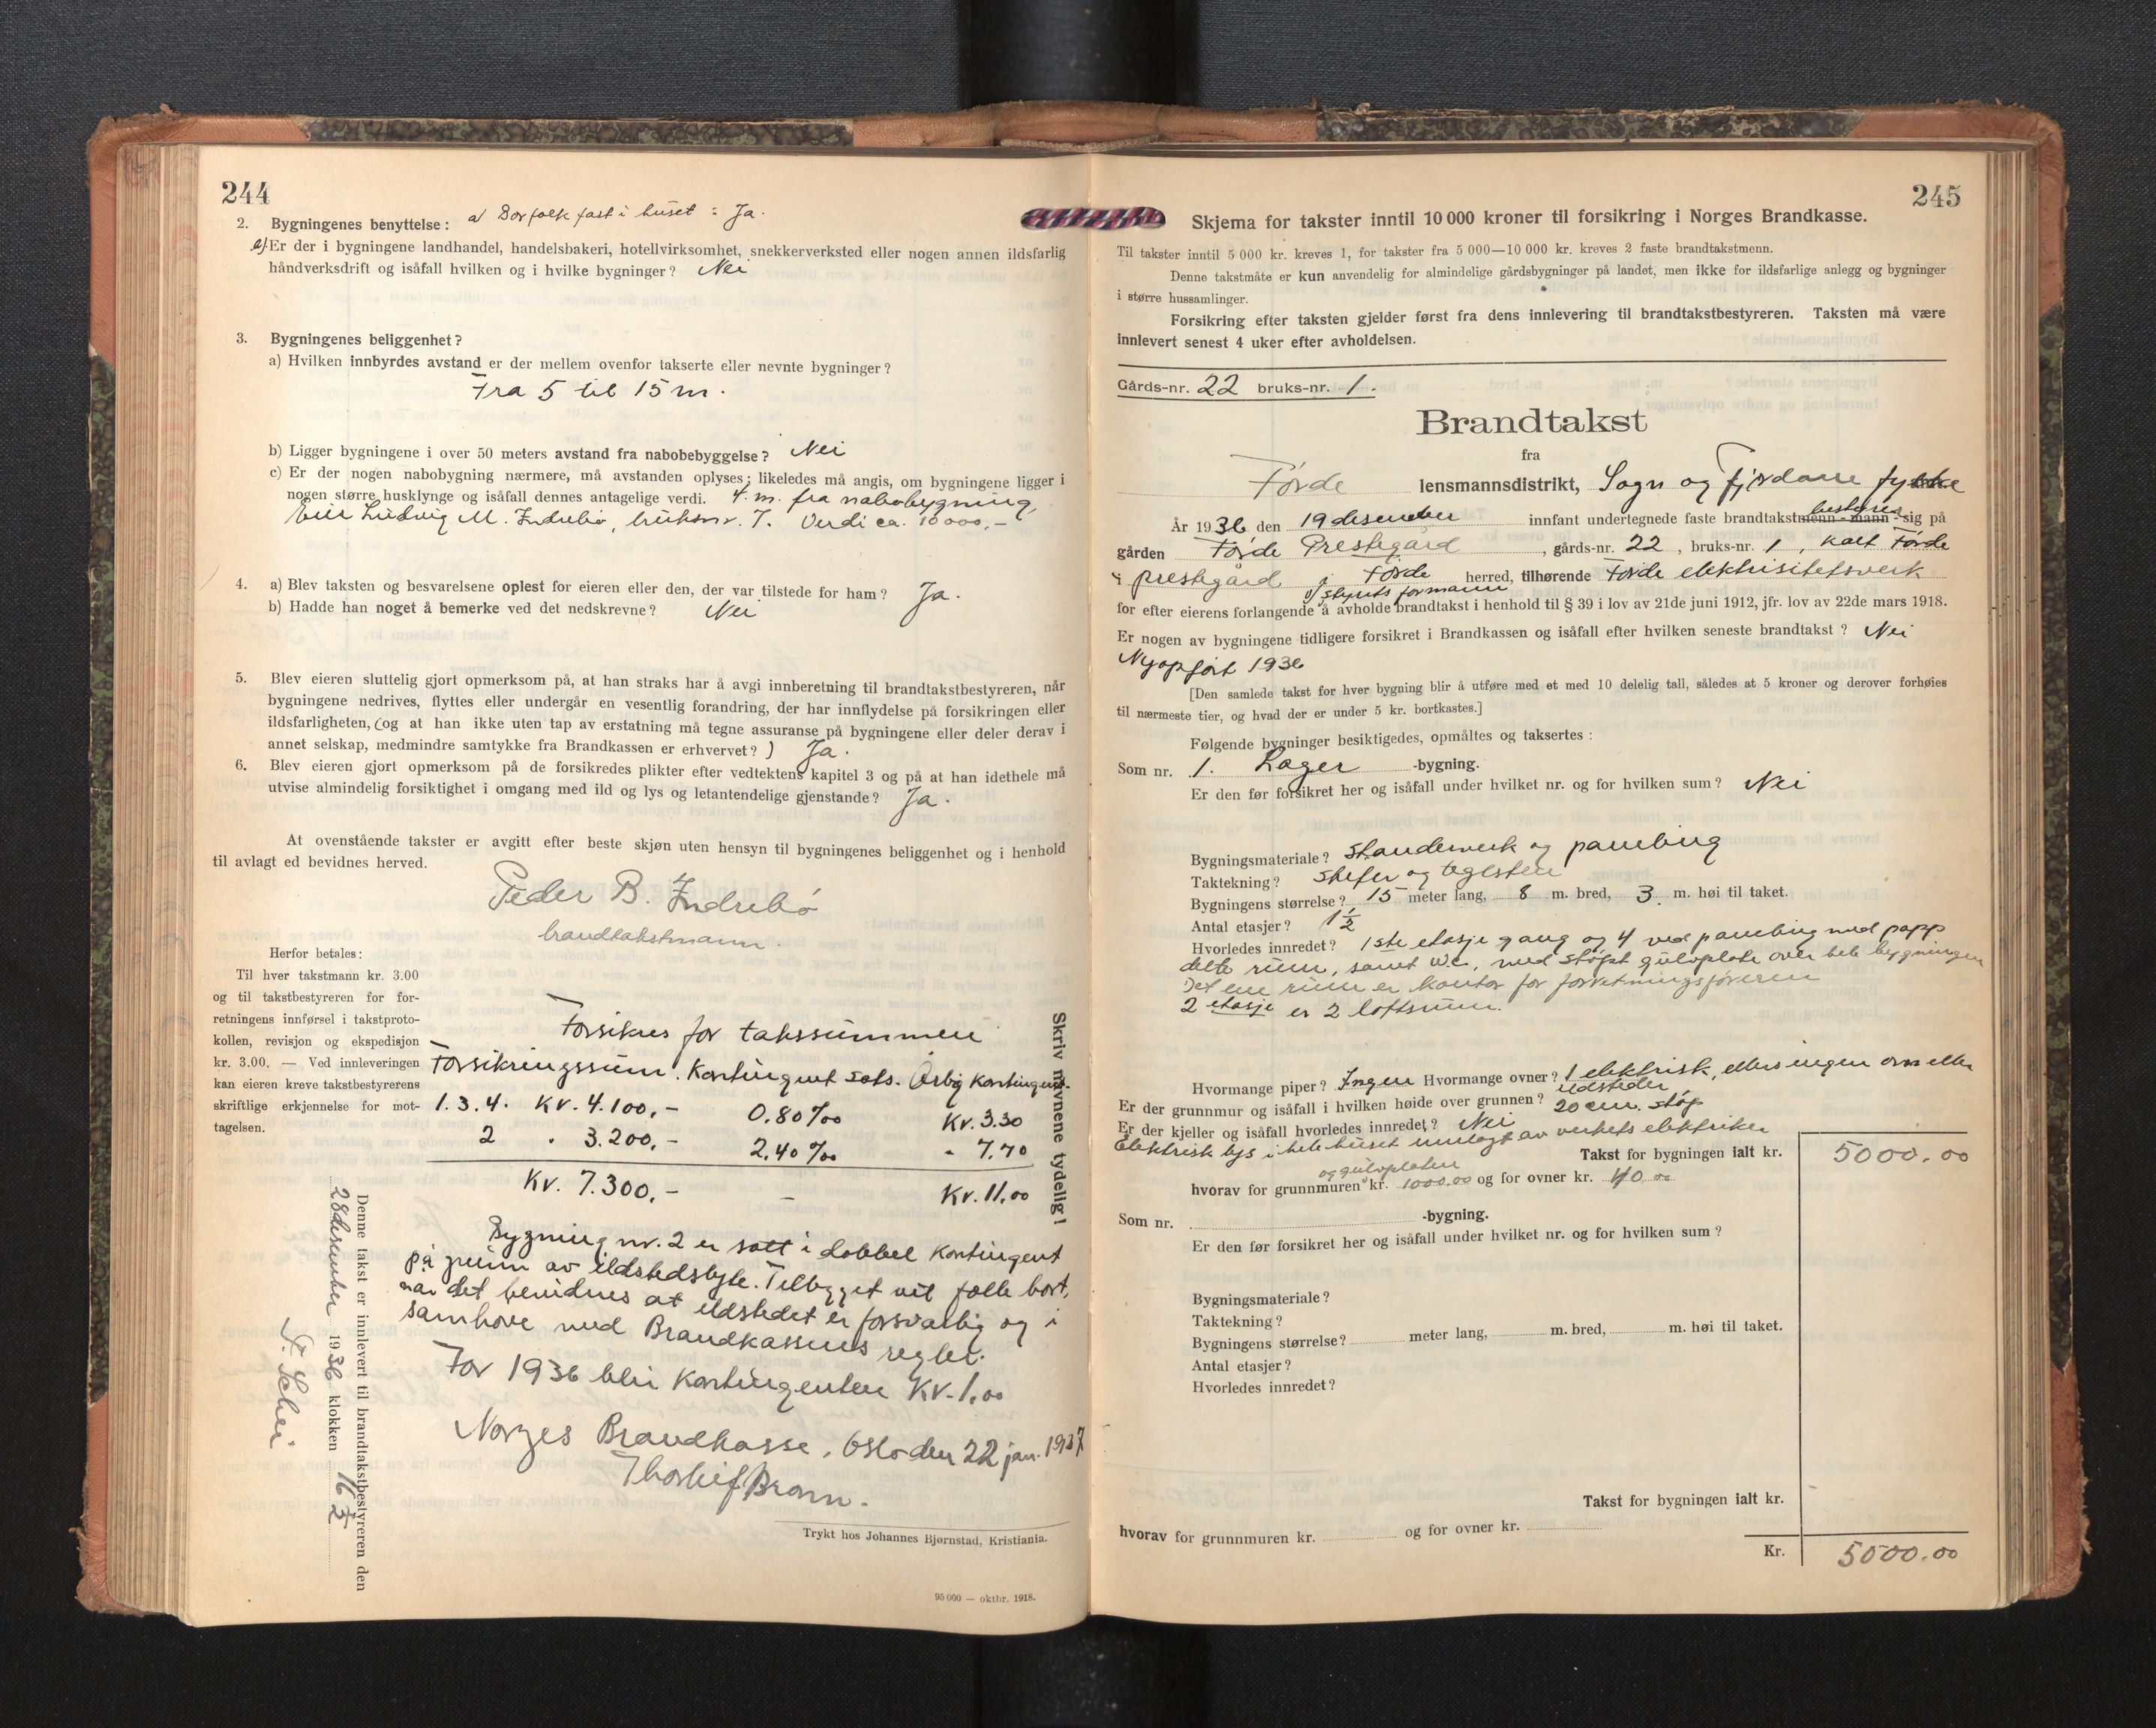 244
2. Bygningenes benyttelse: a) Bor folk fast i huset: Ja.
b) Er der i bygningene landhandel, handelsbakeri, hotellvirksomhet, snekkerverksted eller nogen annen ildsfarlig
håndverksdrift og isåfall hvilken og i hvilke bygninger? Nei
3. Bygningenes beliggenhet?
a) Hvilken innbyrdes avstand er der mellem ovenfor takserte eller nevnte bygninger?
Fra 5 til 15 m.
b) Ligger bygningene i over 50 meters avstand fra nabobebyggelse? Nei
c) Er der nogen nabobygning nærmere, må avstanden oplyses; likeledes må angis, om bygningene ligger i
nogen større husklynge og isåfall dennes antagelige verdi. 4. m. fra nabobygning,
Eier Ludvig M. Indrebø, bruksnr. 7. Verdi ca. 10000,-
4. a) Blev taksten og besvarelsene oplest for eieren eller den, der var tilstede for ham? Ja.
b) Hadde han noget å bemerke ved det nedskrevne? Nei
5. Blev eieren sluttelig gjort opmerksom på, at han straks har å avgi innberetning til brandtakstbestyreren, når
bygningene nedrives, flyttes eller undergår en vesentlig forandring, der har innflydelse på forsikringen eller
ildsfarligheten, (og at han ikke uten tap av erstatning må tegne assuranse på bygningene eller deler derav i
annet selskap, medmindre samtykke fra Brandkassen er erhvervet?) Ja.
6. Blev eieren gjort opmerksom på de forsikredes plikter efter vedtektens kapitel 3 og på at han idethele må
utvise almindelig forsiktighet i omgang med ild og lys og letantendelige gjenstande? Ja.
At ovenstående takster er avgitt efter beste skjøn uten hensyn til bygningenes beliggenhet og i henhold
til avlagt ed bevidnes herved.
Peder B. Indrebø
brandtakstmann.
Herfor betales:
Til hver takstmann kr. 3.00
og til takstbestyreren for for-
retningens innførsel i takstproto-
kollen, revisjon og ekspedisjon
kr. 3.00. — Ved innleveringen
kan eieren kreve takstbestyrerens
skriftlige erkjennelse for mot-
tagelsen.
Forsikres for takssummen
Forsikringssum. Kontingent sats. Årlig kontingent.
1. 3. 4. Kr. 4.100,- 0.80‰ Kr. 3.30
2 " 3.200,- 2.40‰ - 7.70
Kr. 7.300,- - Kr. 11.00
Bygning nr. 2 er satt i dobbel kontingent
på grunn av ildstedslyte. Tillegget vil falle bort,
når det bevidnes at ildstedet er forsvarlig og i
samhøve med Brandkassens regler.
For 1936 blir kontingenten Kr. 1.00
Norges Brandkasse, Oslo den 22 jan. 1937
Thorleif Bronn.
Skriv navnene tydelig!
Denne takst er innlevert til brandtakstbestyreren den
28 desember 1936 klokken 16
Trykt hos Johannes Bjørnstad, Kristiania.
95 000 — oktbr. 1918.
245
Skjema for takster inntil 10 000 kroner til forsikring i Norges Brandkasse.
Til takster inntil 5 000 kr. kreves 1, for takster fra 5 000—10 000 kr. kreves 2 faste brandtakstmenn.
Denne takstmåte er kun anvendelig for almindelige gårdsbygninger på landet, men ikke for ildsfarlige anlegg og bygninger
i større hussamlinger.
Forsikring efter taksten gjelder først fra dens innlevering til brandtakstbestyreren. Taksten må være
innlevert senest 4 uker efter avholdelsen.
Gårds-nr. 22 bruks-nr. 1.
Brandtakst
fra
Förde lensmannsdistrikt, Sogn og Fjordane fylke
År 1936 den 19 desember innfant undertegnede faste brandtakstmenn-mann-bestyrer sig på
gården Förde Prestegård, gårds-nr. 22, bruks-nr. 1, kalt Förde
prestegård i Förde herred, tilhørende Förde elektrisitetsverk
v/ styrets formann
for efter eierens forlangende å avholde brandtakst i henhold til § 39 i lov av 21de juni 1912, jfr. lov av 22de mars 1918.
Er nogen av bygningene tidligere forsikret i Brandkassen og isåfall efter hvilken seneste brandtakst? Nei
Nyopført 1936
[Den samlede takst for hver bygning blir å utføre med et med 10 delelig tall, således at 5 kroner og derover forhøies
til nærmeste tier, og hvad der er under 5 kr. bortkastes.]
Følgende bygninger besiktigedes, opmåltes og taksertes:
Som nr. 1. Lager -bygning.
Er den før forsikret her og isåfall under hvilket nr. og for hvilken sum? Nei
Bygningsmateriale? Standerverk og paneling
Taktekning? Skifer og teglsten
Bygningens størrelse? 15 meter lang, 8 m. bred, 3. m. høi til taket.
Antal etasjer? 1½
Hvorledes innredet? 1ste etasje gang og 4 ved paneling med papp
delte rum, samt w.c., med støpt gulvplate over hele bygningen
Det ene rum er kontor for forretningsføreren
2 etasje er 2 loftsrum.
Hvormange piper? Ingen Hvormange ovner? 1 elektrisk, ellers ingen ovn eller
ildsteder
Er der grunnmur og isåfall i hvilken høide over grunnen? 20 cm. støp
Er der kjeller og isåfall hvorledes innredet? Nei
Elektrisk lys i hele huset innlagt av verkets elektriker
Takst for bygningen ialt kr. 5000.00
og gulvplaten
hvorav for grunnmuren kr. 1000.00 og for ovner kr. 40.00
Som nr. -bygning.
Er den før forsikret her og isåfall under hvilket nr. og for hvilken sum?
Bygningsmateriale?
Taktekning?
Bygningens størrelse? meter lang, m. bred, m. høi til taket.
Antal etasjer?
Hvorledes innredet?
Takst for bygningen ialt kr.
hvorav for grunnmuren kr. og for ovner kr.
Kr. 5000.00